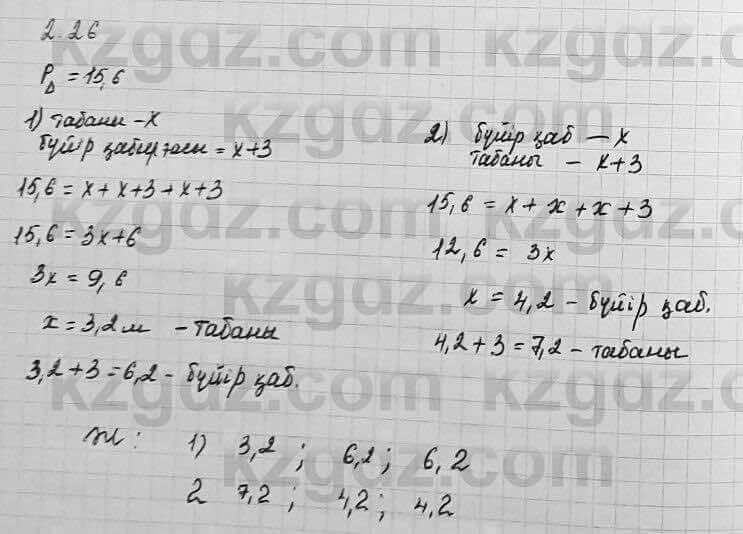 2.26
P△ = 15,6
1) табаны - х
бүйір қабырғасы = х+3
15,6 = х + х+3 + х+3
15,6 = 3х+6
3х = 9,6
х = 3,2 м - табаны
3,2+3 = 6,2 - бүйір қаб.
2) бүйір қаб — х
табаны — х+3
15,6 = х + х + х + 3
12,6 = 3х
х = 4,2 - бүйір қаб.
4,2+3 = 7,2 - табаны
Ж: 1) 3,2 ; 6,2 ; 6,2
2 7,2 ; 4,2 ; 4,2
kzgdz.com
kzgdz.com
kzgdz.com
kzgdz.com
kzgdz.com
kzgdz.com